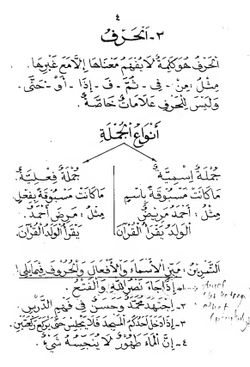 ٤
٣- الْحَرْفُ
الْحَرْفُ هُوَ كَلِمَةٌ لَا يُفْهَمُ مَعْنَاهَا إِلَّا مَعَ غَيْرِهَا.
مِثْلُ: مِنْ - فِي - ثُمَّ - فَ - إِذَا - أَوْ - حَتَّى.
وَلَيْسَ لِلْحَرْفِ عَلَامَاتٌ خَاصَّةٌ.
أَنْوَاعُ الْجُمْلَةِ
جُمْلَةٌ إِسْمِيَّةٌ
مَا كَانَتْ مَسْبُوقَةً بِاسْمٍ
مِثْلُ: أَحْمَدُ مَرِيضٌ
الْوَلَدُ يَقْرَأُ الْقُرْآنَ
جُمْلَةٌ فِعْلِيَّةٌ
مَا كَانَتْ مَسْبُوقَةً بِفِعْلٍ
مِثْلُ: مَرِضَ أَحْمَدُ.
يَقْرَأُ الْوَلَدُ الْقُرْآنَ
التَّمْرِيْنُ: مَيِّزِ الْأَسْمَاءَ وَالْأَفْعَالَ وَالْحُرُوْفَ فِيْمَا يَلِيْ!
١- إِذَا جَاءَ نَصْرُ اللهِ وَالْفَتْحُ.
٢- اِجْتَهَدَ مُحَمَّدٌ وَحَسَنٌ فِيْ فَهْمِ الدَّرْسِ.
٣- إِذَا دَخَلَ أَحَدُكُمُ الْمَسْجِدَ فَلَا يَجْلِسْ حَتَّى يَرْكَعَ رَكْعَتَيْنِ.
٤- إِنَّ الْمَاءَ طَهُوْرٌ لَا يُنَجِّسُهُ شَيْءٌ.